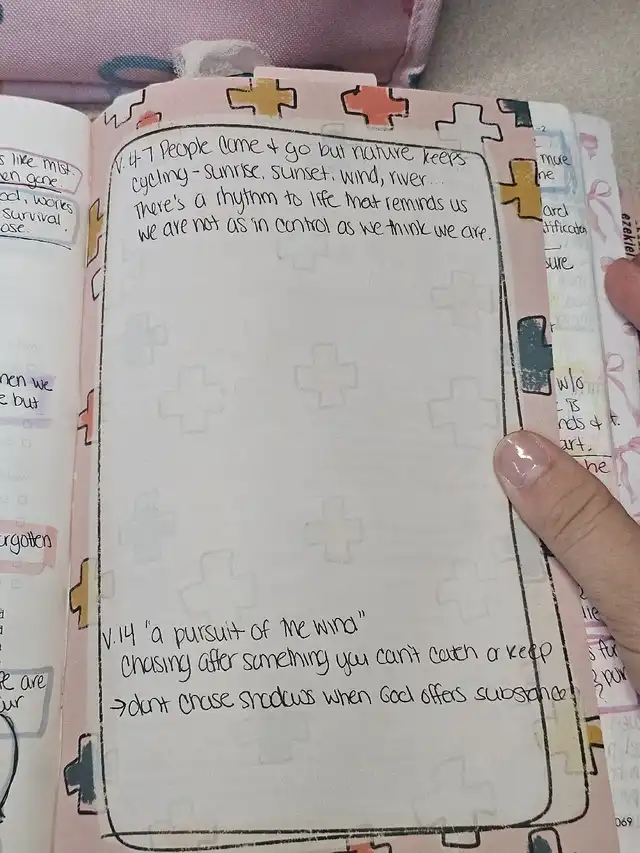 s like mist.
en gone
od, works
survival.
ase.
hen we
e but
orgotten
e are
ur
v. 4-7 People come & go but nature keeps
cycling - sunrise, sunset, wind, river...
There's a rhythm to life that reminds us
we are not as in control as we think we are.
v. 14 "a pursuit of the wind"
chasing after something you can't catch or keep
→ dont chase shadows when God offers substance!
more
ne
ard
tificates
sure
w/o
is
nds & t
art.
he
ezekiel
069